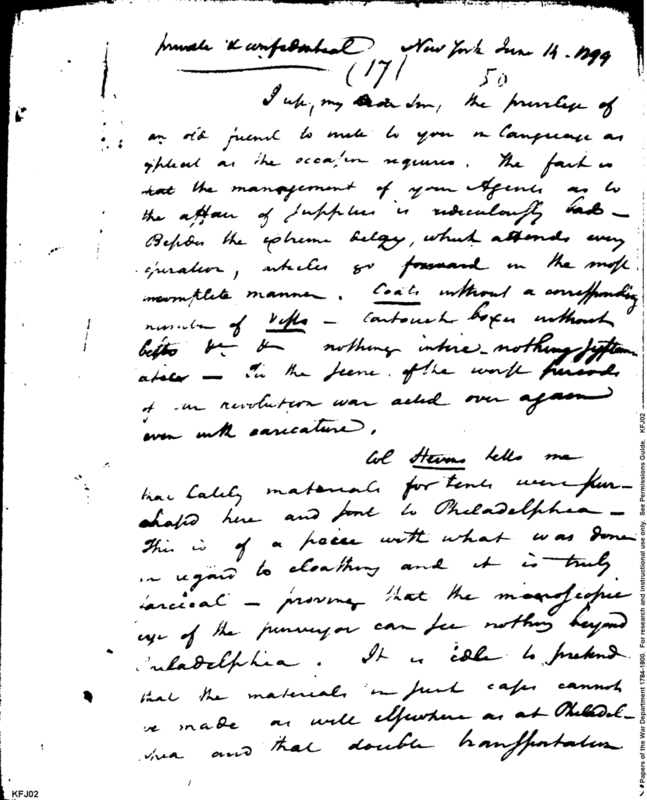 private & confidential New York June 14. 1799
(17) 50
I use, my Dear Sir, the privilege of
an old friend to write to you in Language as
explicit as the occasion requires. The fact is
that the management of your Agents as to
the affair of supplies is ridiculously bad—
Besides the extreme delay, which attends every
operation, articles go forward in the most
incomplete manner. Coats without a corresponding
number of Vests — Cartouch boxes without
belts &c &c nothing intire – nothing systema
atick — Tis the scene of the worst periods
of our revolution war acted over again
even with caricature.
Col Stevens tells me
that lately materials for tents were pur–
chased here and sent to Philadelphia –
This is of a piece with what was done
in regard to cloathing and it is truly
farcical – proving that the microscopic
eye of the purveyor can see nothing beyond
Philadelphia. It is idle to pretend
that the materials in such cases cannot
be made as well elsewhere as at Philadel–
phia and that double transportation
KFJ02
Papers of the War Department 1784-1800. For research and instructional use only. See Permissions Guide. KFJ02